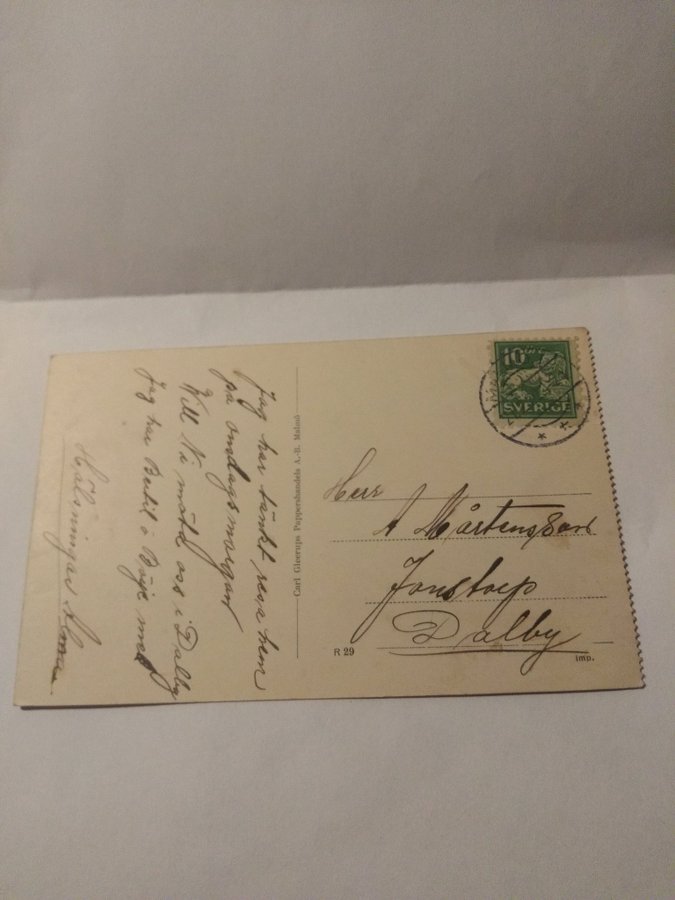 Jag har tänkt resa hem
på onsdagsmorgon
Will Ni möta oss i Dalby
Jag har Bertil o Böije med
Hälsningar
Carl Gleerups Pappershandels A.-B. Malmö
10 ÖRE
SVERIGE
Herr
A Mårtensson
Jonstorp
Dalby
R 29
imp.